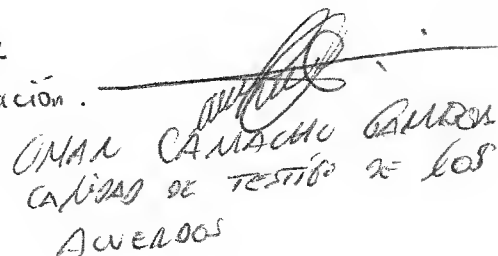 ación.
OMAR CAMACHO
CALIDAD DE TESTIGO DE LOS
ACUERDOS